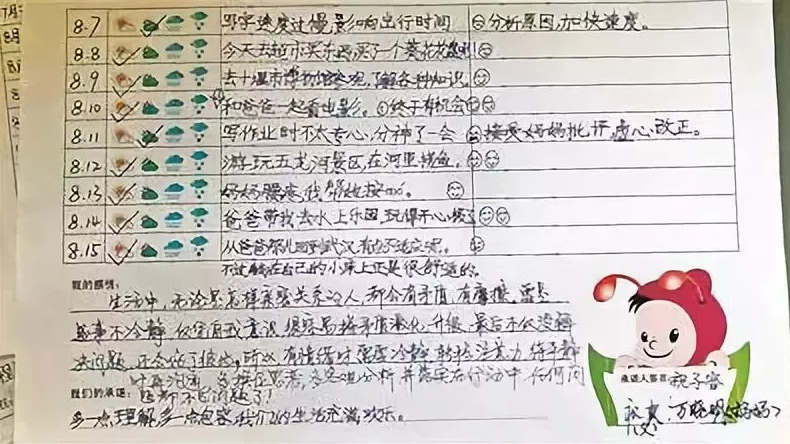 8.7 写字速度过慢,影响出行时间 分析原因,加快速度。
8.8 今天去超市买东西,买了一个葵花
8.9 去十堰市博物馆参观,了解各种知识。
8.10 和爸爸一起看电影。终于有机会
8.11 写作业时不太专心,分神了一会 接受妈妈批评,虚心改正。
8.12 游玩五龙河景区,在河里
8.13 妈妈腰疼,我帮她按
8.14 爸爸带我去水上乐园,玩得开心
8.15 从爸爸那儿回到武汉有点不适应
不过躺在自己的小床上还是很舒适的。
我的感悟:
生活中,无论是怎样亲密关系的人,都会有矛盾,有摩擦,
不冷静 很容易将矛盾激化,升级,最后不仅没解
决问题,还会伤了彼此,所以有情绪时要冷静,转移注意力,待平静
时再沟通, 分析并落实在行动中,任何问
题都不是问题了!
我们的承诺:
多一点理解,多一点包容,我们的生活充满欢乐。
承诺人签名:
(妈妈)